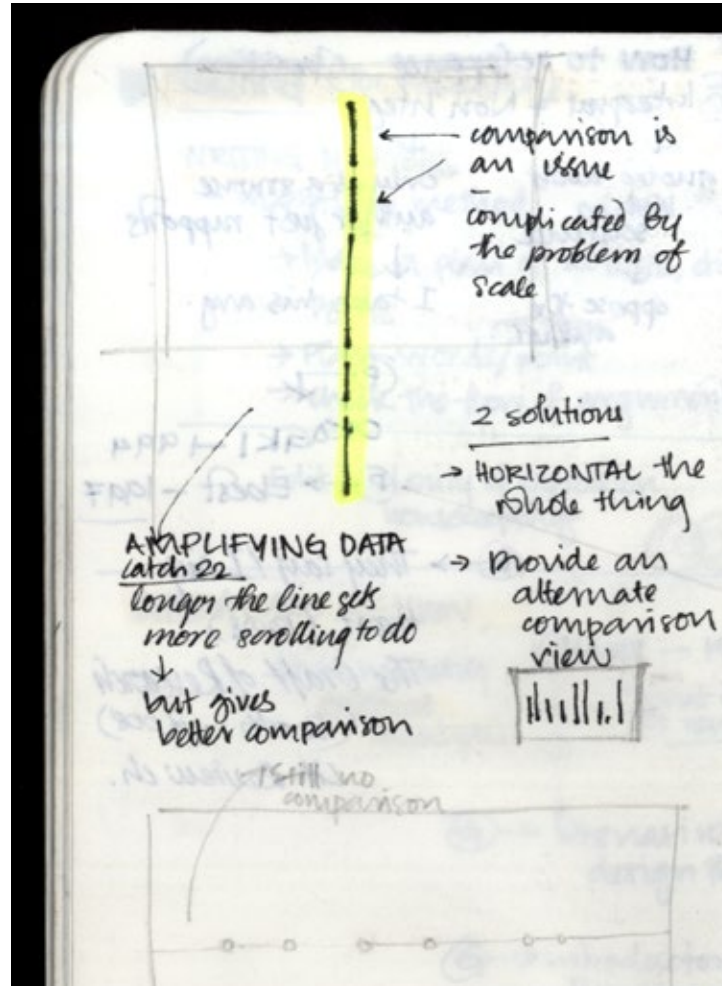 comparison is
an issue
–
complicated by
the problem of
scale
2 solutions
→ HORIZONTAL the
whole thing
→ Provide an
alternate
comparison
view
AMPLIFYING DATA
catch 22
longer the line gets
more scrolling to do
↓
but gives
better comparison
still no
comparison